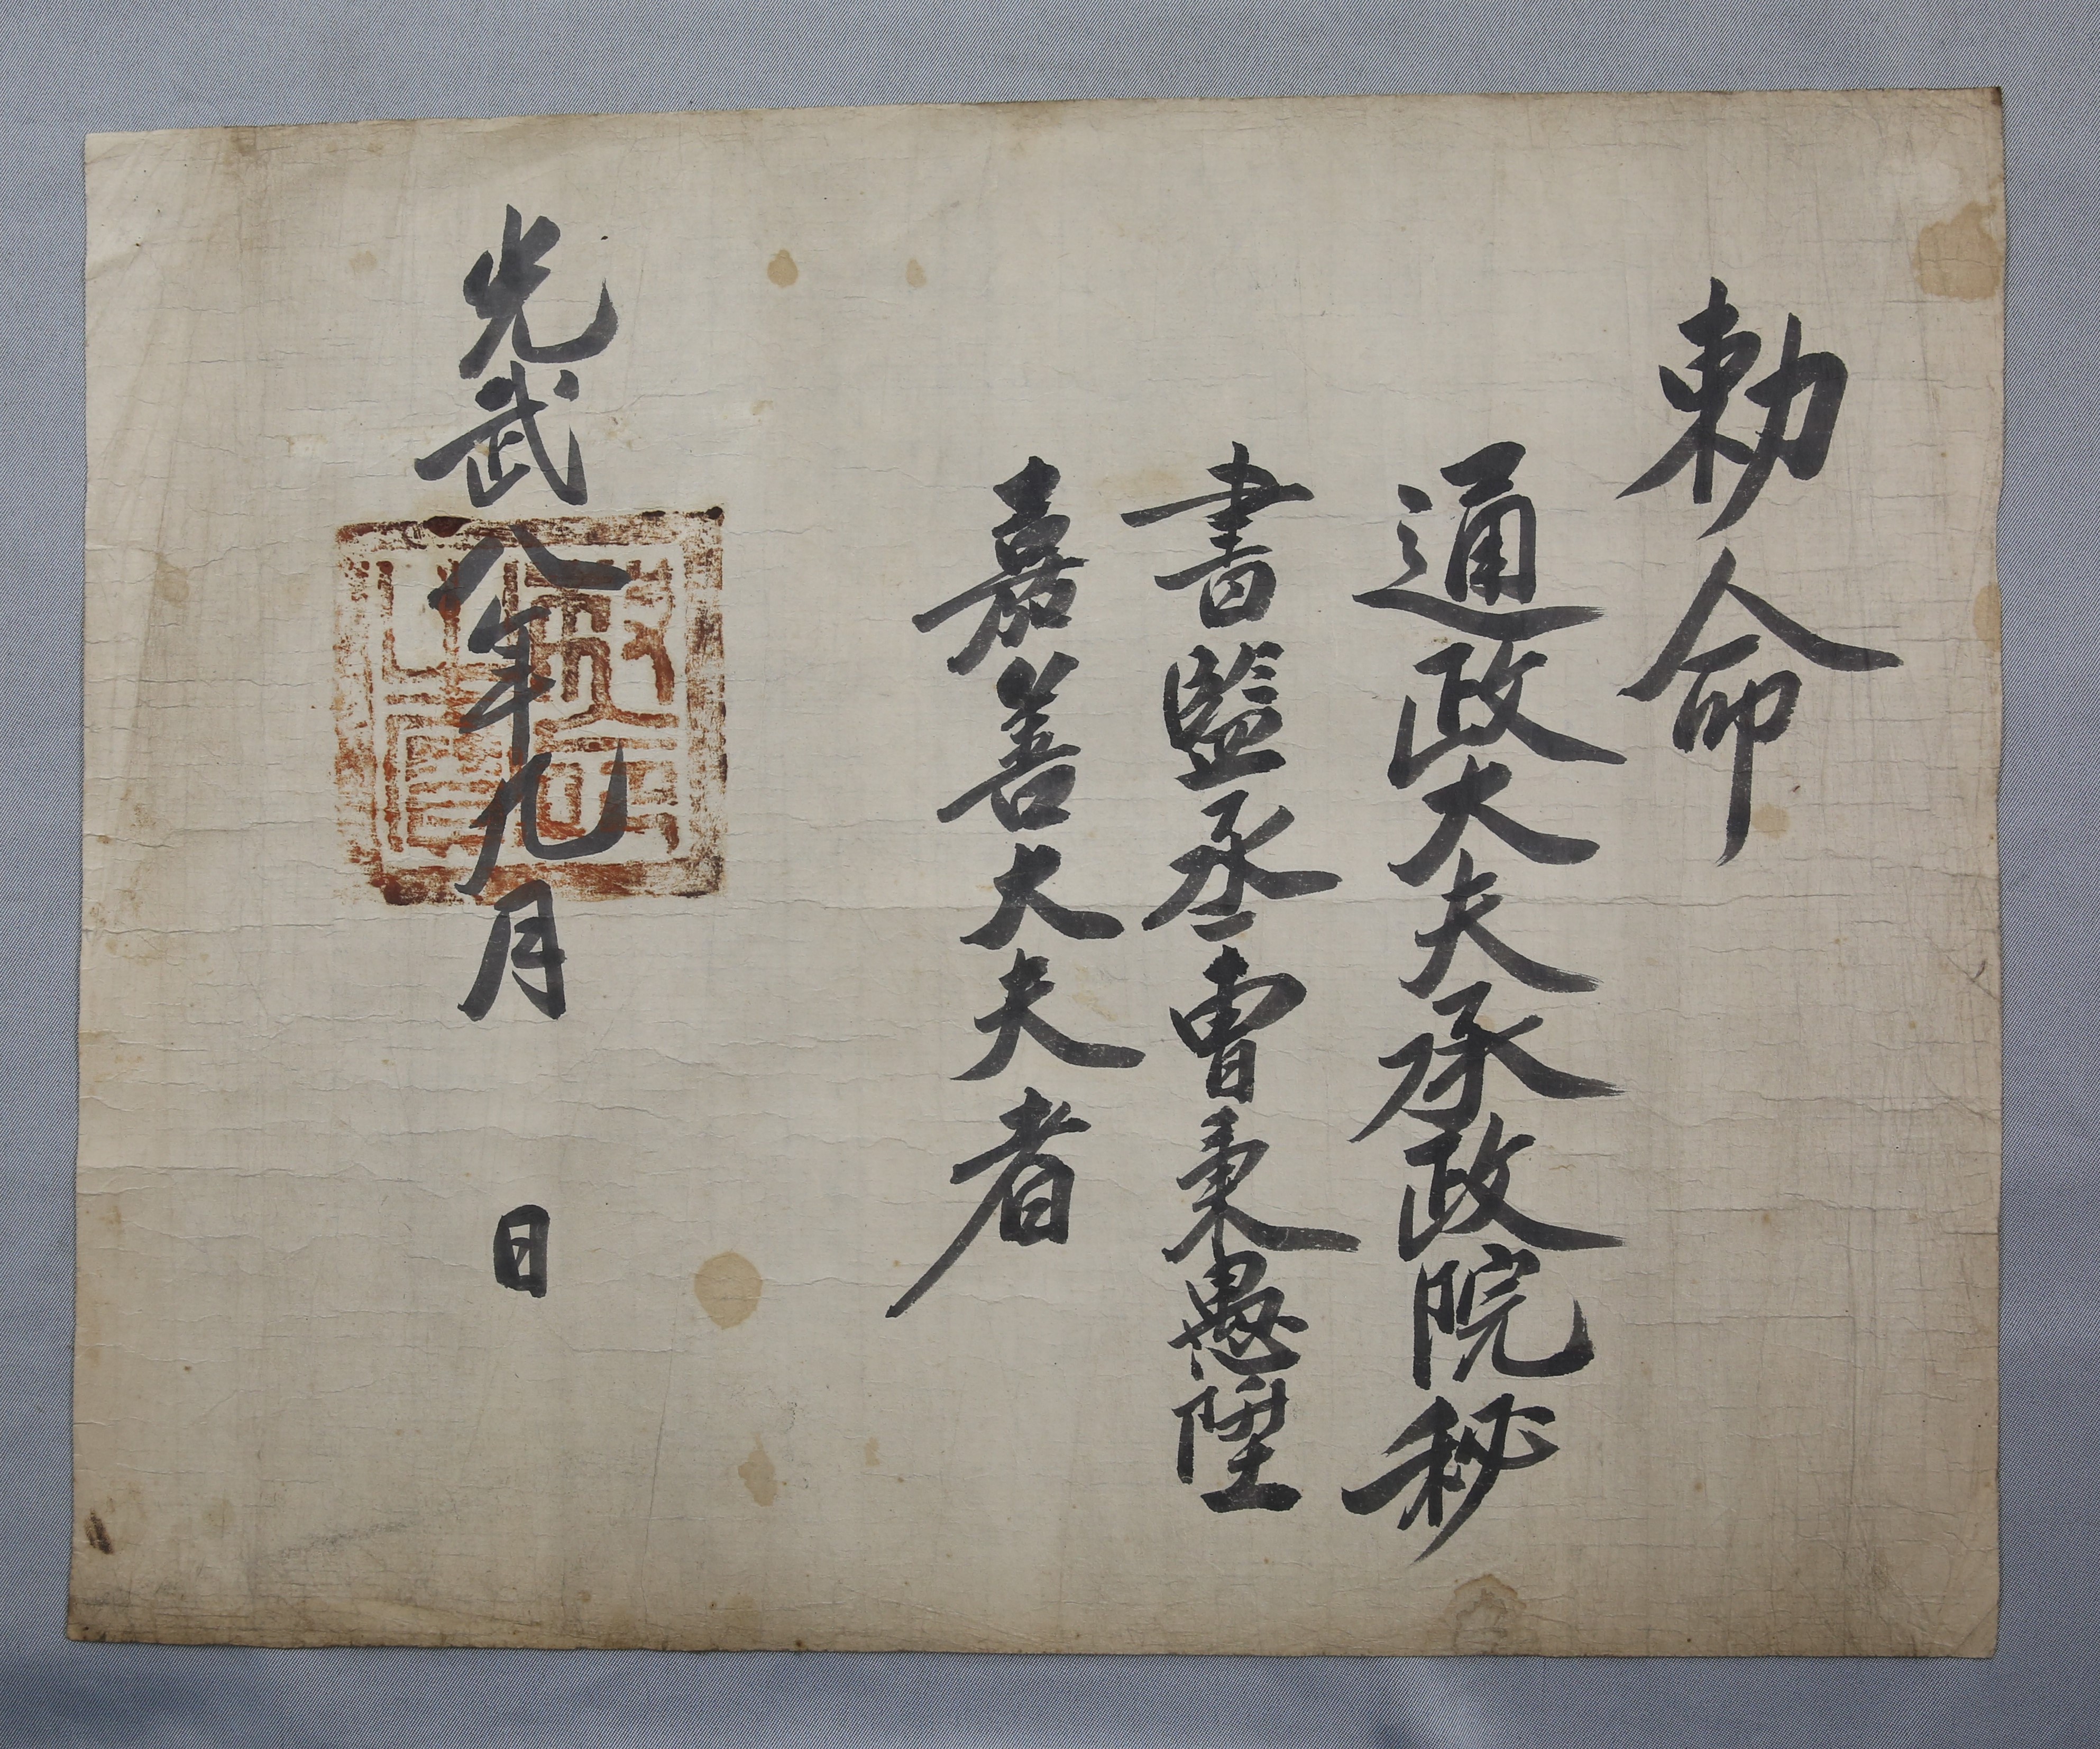 勅命
通政大夫承政院秘
書監丞曺秉愚陞
嘉善大夫者
光武八年九月　日